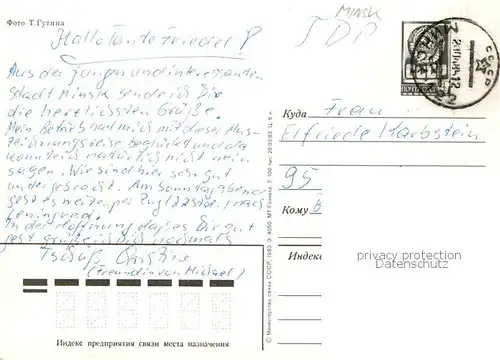 Фото Т.Гутина
Hallo Tante Friedel!
Aus der jungen und interessanten
Stadt Minsk sende ich Die
die herzlichsten Grüße.
Mein Betrieb hat mich mit dieser Aus-
zeichnungsreise beglückt und da
konnte ich natürlich nicht nein
sagen. Wir sind hier sehr gut
untergebracht. Am Sonntag abend
geht es weiter per Zug 12 Std. nach
Leningrad.
In der Hoffnung daß es Dir gut
geht grüße ich nochmals
Tschüß Christine
(Freundin von Michael)
Индекс предприятия связи места назначения
MINSK
ПОЧТА СССР
СССР
МИНСК
Куда Frau
Elfriede Karbstein
95
Кому
Индекс
privacy protection
Datenschutz
© Министерство связи СССР, 1983. З. 4050. МТ Гознака. Т. 100 тыс. 29.03.83. Ц. 6 к.